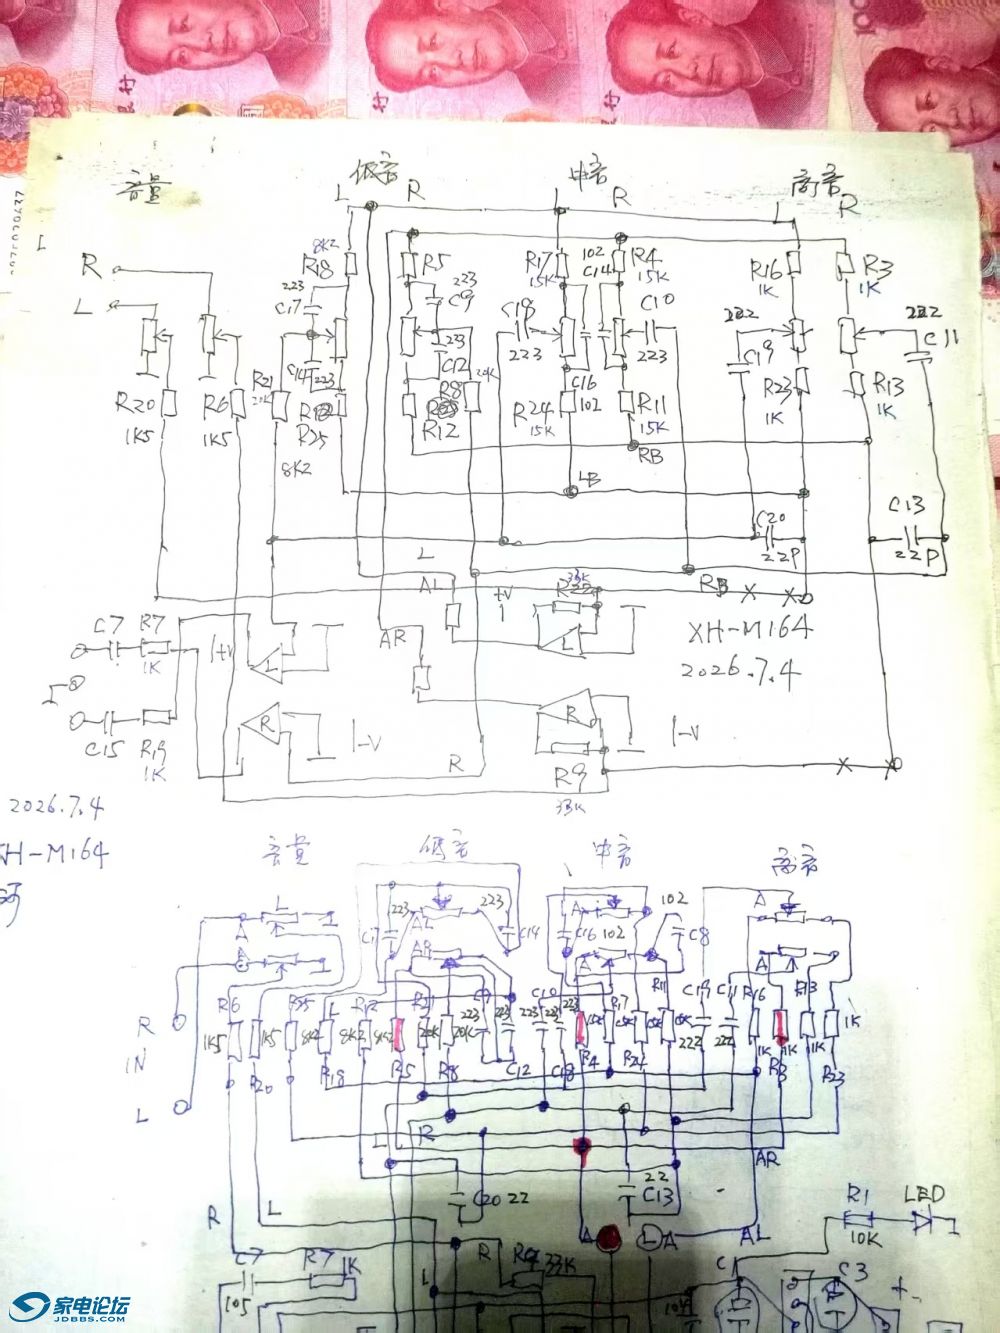 音量
低音
中音
高音
L
R
L
R
L
R
R
L
8K2
R18
223
C17
R5
223
C9
R17
15K
102
C14
R4
15K
C10
223
C18
223
R16
1K
R3
1K
222
C19
222
C11
223
C12
R8
20K
R12
R21
20K
C14
223
R25
8K2
R20
1K5
R6
1K5
C16
102
R24
15K
R11
15K
R23
1K
R13
1K
RB
LB
C20
22P
C13
22P
L
AL
RB
+V
33K
R22
AR
L
XH-M164
2026.7.4
C7
R7
1K
+V
L
R
-V
C15
R19
1K
R
R
-V
R9
33K
2026.7.4
XH-M164
音量
低音
中音
高音
L
A
A
223
AL
223
C14
AR
A
C16
102
A
102
C8
A
A
R
IN
L
R6
1K5
1K5
R20
8K2
R18
R12
8K2
8K2
R5
20K
R8
20K
223
223
C12
C10
223
223
C18
223
R4
R17
15K
R24
R11
15K
15K
C19
222
C11
222
R16
1K
1K
R3
R13
1K
1K
R23
R
L
R
L
C20 22
22
C13
AR
A
L
A
AL
R1
10K
LED
C7
105
R7
1K
R
R9
33K
L
C1
C3
+
家电论坛
JDBBS.COM